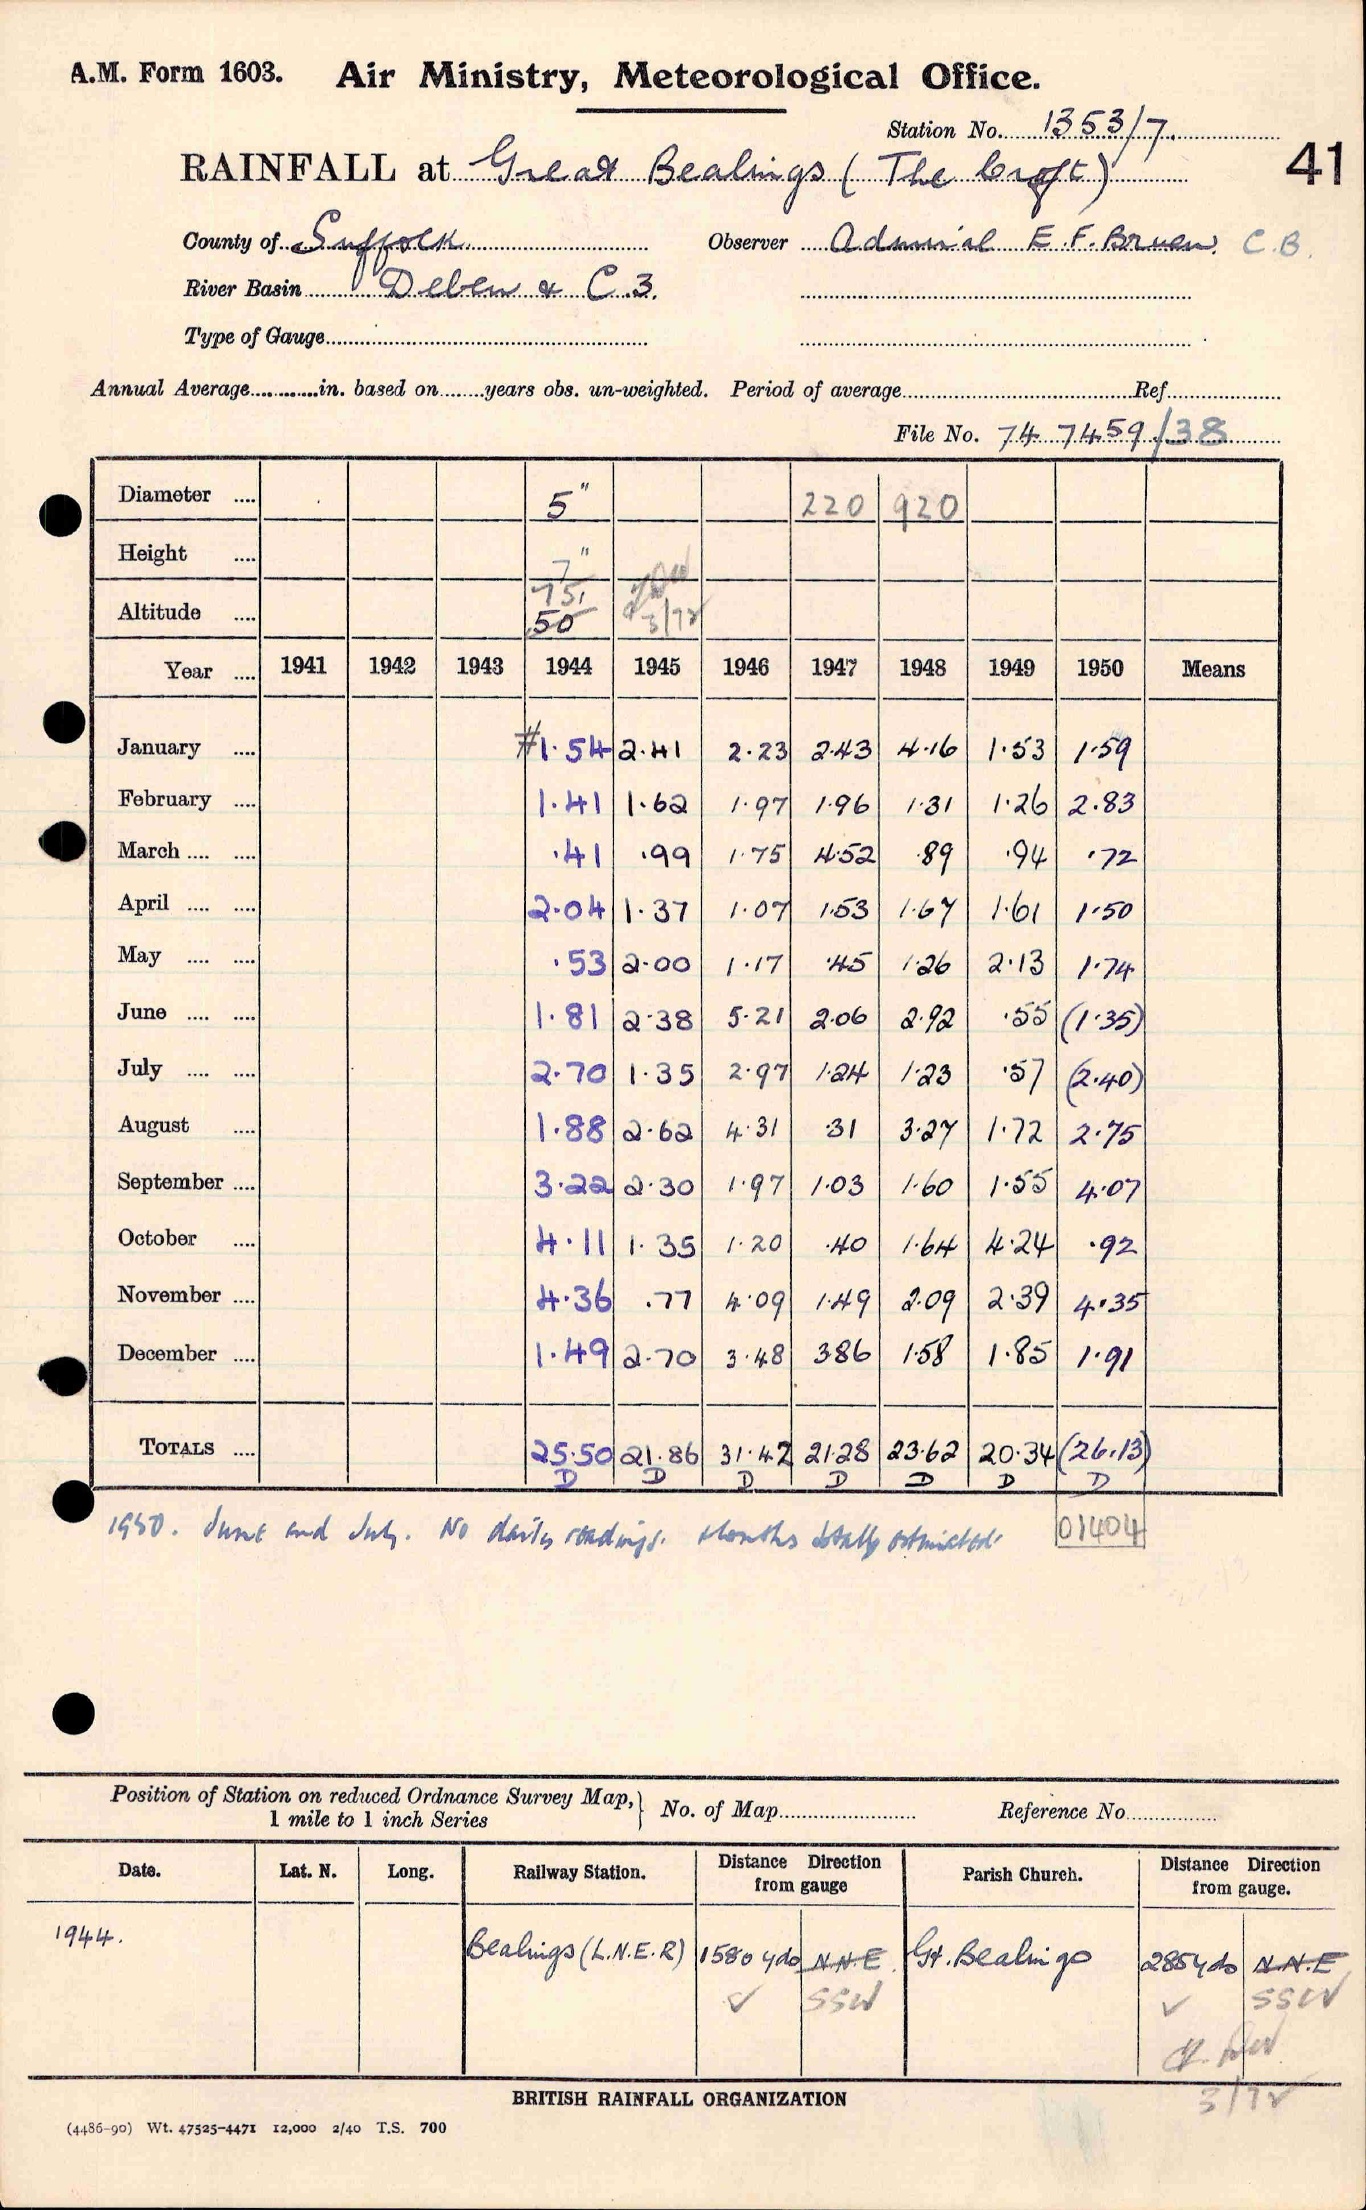 A.M. Form 1603. Air Ministry, Meteorological Office.
Station No. 1353/7.
RAINFALL at Great Bealings (The Croft)
41
County of Suffolk Observer Admiral E. F. Bruen. C.B.
River Basin Deben & C.3.
Type of Gauge
Annual Average in. based on years obs. un-weighted. Period of average Ref
File No. 74 7459/38
Diameter 5" 220 920
Height 7"
75,
Altitude 50 3/72
Year 1941 1942 1943 1944 1945 1946 1947 1948 1949 1950 Means
January #1.54 2.41 2.23 2.43 4.16 1.53 1.59
February 1.41 1.62 1.97 1.96 1.31 1.26 2.83
March .41 .99 1.75 4.52 .89 .94 .72
April 2.04 1.37 1.07 1.53 1.67 1.61 1.50
May .53 2.00 1.17 .45 1.26 2.13 1.74
June 1.81 2.38 5.21 2.06 2.92 .55 (1.35)
July 2.70 1.35 2.97 1.24 1.23 .57 (2.40)
August 1.88 2.62 4.31 .31 3.27 1.72 2.75
September 3.22 2.30 1.97 1.03 1.60 1.55 4.07
October 4.11 1.35 1.20 .40 1.64 4.24 .92
November 4.36 .77 4.09 1.49 2.09 2.39 4.35
December 1.49 2.70 3.48 3.86 1.58 1.85 1.91
TOTALS 25.50 21.86 31.42 21.28 23.62 20.34 (26.13)
D D D D D D D
1950. June and July. No daily readings. Months totally estimated. 01404
Position of Station on reduced Ordnance Survey Map, 1 mile to 1 inch Series } No. of Map Reference No.
Date. Lat. N. Long. Railway Station. Distance Direction from gauge Parish Church. Distance Direction from gauge.
1944. Bealings (L.N.E.R) 1580 yds N.N.E Gt. Bealings 285 yds N.N.E
✓ SSW ✓ SSW
3/72
BRITISH RAINFALL ORGANIZATION
(4486-90) Wt. 47525-4471 12,000 2/40 T.S. 700